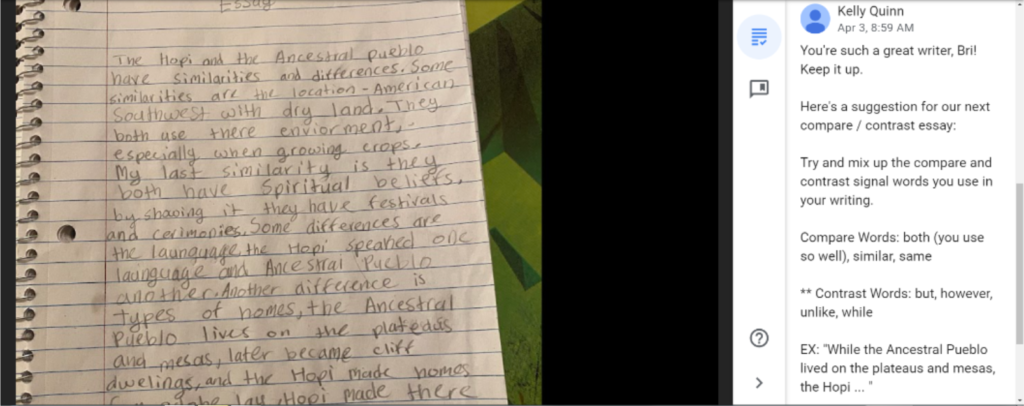 Essay
The Hopi and the Ancestral Pueblo
have similarities and differences. Some
similarities are the location - American
Southwest with dry land. They
both use there enviorment,
especially when growing crops.
My last similarity is they
both have Spiritual beliefs,
by showing it they have festivals
and cerimonies. Some differences are
the launguage, the Hopi speaked one
launguage and Ancestral Pueblo
another. Another difference is
types of homes, the Ancestral
Pueblo lives on the plateaus
and mesas, later became cliff
dwelings, and the Hopi made homes
Hopi made there
Kelly Quinn
Apr 3, 8:59 AM
You're such a great writer, Bri!
Keep it up.
Here's a suggestion for our next
compare / contrast essay:
Try and mix up the compare and
contrast signal words you use in
your writing.
Compare Words: both (you use
so well), similar, same
** Contrast Words: but, however,
unlike, while
EX: "While the Ancestral Pueblo
lived on the plateaus and mesas,
the Hopi ... "